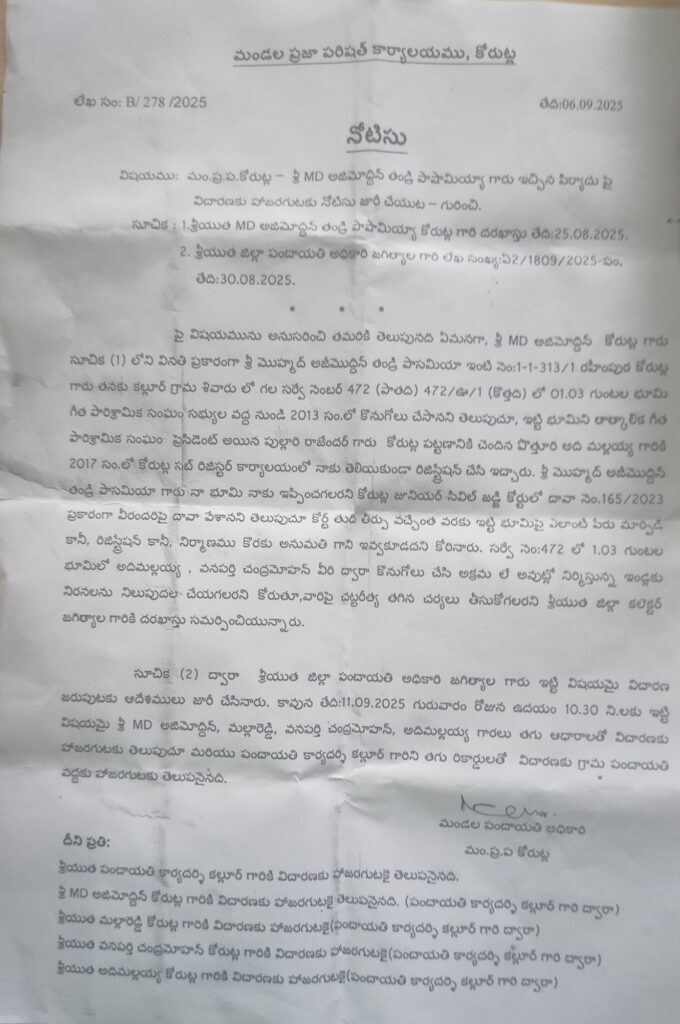 మండల ప్రజా పరిషత్ కార్యాలయము, కోరుట్ల
లేఖ సం: B/ 278 /2025
తేది:06.09.2025
నోటీసు
విషయము: మం.ప్ర.ప.కోరుట్ల – శ్రీ MD అజిమోద్దిన్ తండ్రి పాషామియ్యా గారు ఇచ్చిన పిర్యాదు పై
విచారణకు హాజరగుటకు నోటీసు జారీ చేయుట – గురించి.
సూచిక : 1.శ్రీయుత MD అజిమోద్దిన్ తండ్రి పాషామియ్యా కోరుట్ల గారి దరఖాస్తు తేది:25.08.2025.
2. శ్రీయుత జిల్లా పంచాయతి అధికారి జగిత్యాల గారి లేఖ సంఖ్య:ఏ2/1809/2025-పం,
తేది:30.08.2025.
* * *
పై విషయమును అనుసరించి తమరికి తెలుపునది ఏమనగా, శ్రీ MD అజిమోద్దిన్ కోరుట్ల గారు
సూచిక (1) లోని వినతి ప్రకారంగా శ్రీ మొహ్మద్ అజీమొద్దిన్ తండ్రి పాసమియా ఇంటి నెం:1-1-313/1 రహీంపుర కోరుట్ల
గారు తనకు కల్లూర్ గ్రామ శివారు లో గల సర్వే నెంబర్ 472 (పాతది) 472/ఊ/1 (కొత్తది) లో 01.03 గుంటల భూమి
గీత పారిశ్రామిక సంఘం సభ్యుల వద్ద నుండి 2013 సం.లో కొనుగోలు చేసానని తెలుపుచూ, ఇట్టి భూమిని తాత్కాలిక గీత
పారిశ్రామిక సంఘం ప్రెసిడెంట్ అయిన పుల్లూరి రాజేందర్ గారు కోరుట్ల పట్టణానికి చెందిన పొత్తూరి అది మల్లయ్య గారికి
2017 సం.లో కోరుట్ల సబ్ రిజిస్టర్ కార్యాలయంలో నాకు తెలియకుండా రిజిస్ట్రేషన్ చేసి ఇచ్చారు. శ్రీ మొహ్మద్ అజీమొద్దిన్
తండ్రి పాసమియా గారు నా భూమి నాకు ఇప్పించగలరని కోరుట్ల జూనియర్ సివిల్ జడ్జి కోర్టులో దావా నెం.165/2023
ప్రకారంగా వీరందరిపై దావా వేశానని తెలుపుచూ కోర్ట్ తుది తీర్పు వచ్చేంత వరకు ఇట్టి భూమిపై ఎలాంటి పేరు మార్పిడి
కానీ, రిజిస్ట్రేషన్ కానీ, నిర్మాణము కొరకు అనుమతి గాని ఇవ్వకూడదని కోరినారు. సర్వే నెం:472 లో 1.03 గుంటల
భూమిలో అదిమల్లయ్య , వనపర్తి చంద్రమోహన్ వీరి ద్వారా కొనుగోలు చేసి అక్రమ లే అవుట్లో నిర్మిస్తున్న ఇండ్లకు
నిరసలను నిలుపుదల చేయగలరని కోరుతూ,వారిపై చట్టరీత్య తగిన చర్యలు తీసుకోగలరని శ్రీయుత జిల్లా కలెక్టర్
జగిత్యాల గారికి దరఖాస్తు సమర్పించియున్నారు.
సూచిక (2) ద్వారా శ్రీయుత జిల్లా పంచాయతి అధికారి జగిత్యాల గారు ఇట్టి విషయమై విచారణ
జరుపుటకు ఆదేశములు జారీ చేసినారు. కావున తేది:11.09.2025 గురువారం రోజున ఉదయం 10.30 ని.లకు ఇట్టి
విషయమై శ్రీ MD అజిమోద్దిన్, మల్లారెడ్డి, వనపర్తి చంద్రమోహన్, అదిమల్లయ్య గారలు తగు ఆధారాలతో విచారణకు
హాజరగుటకు తెలుపుచూ మరియు పంచాయతి కార్యదర్శి కల్లూర్ గారిని తగు రికార్డులతో విచారణకు గ్రామ పంచాయతి
వద్దకు హాజరగుటకు తెలుపనైనది.
మండల పంచాయతి అధికారి
మం.ప్ర.ప కోరుట్ల
దీని ప్రతి:
శ్రీయుత పంచాయతి కార్యదర్శి కల్లూర్ గారికి విచారణకు హాజరగుటకై తెలుపనైనది.
శ్రీ MD అజిమోద్దిన్ కోరుట్ల గారికి విచారణకు హాజరగుటకై తెలుపనైనది. (పంచాయతి కార్యదర్శి కల్లూర్ గారి ద్వారా)
శ్రీయుత మల్లారెడ్డి కోరుట్ల గారికి విచారణకు హాజరగుటకై(పంచాయతి కార్యదర్శి కల్లూర్ గారి ద్వారా)
శ్రీయుత వనపర్తి చంద్రమోహన్ కోరుట్ల గారికి విచారణకు హాజరగుటకై(పంచాయతి కార్యదర్శి కల్లూర్ గారి ద్వారా)
శ్రీయుత అదిమల్లయ్య కోరుట్ల గారికి విచారణకు హాజరగుటకై(పంచాయతి కార్యదర్శి కల్లూర్ గారి ద్వారా)